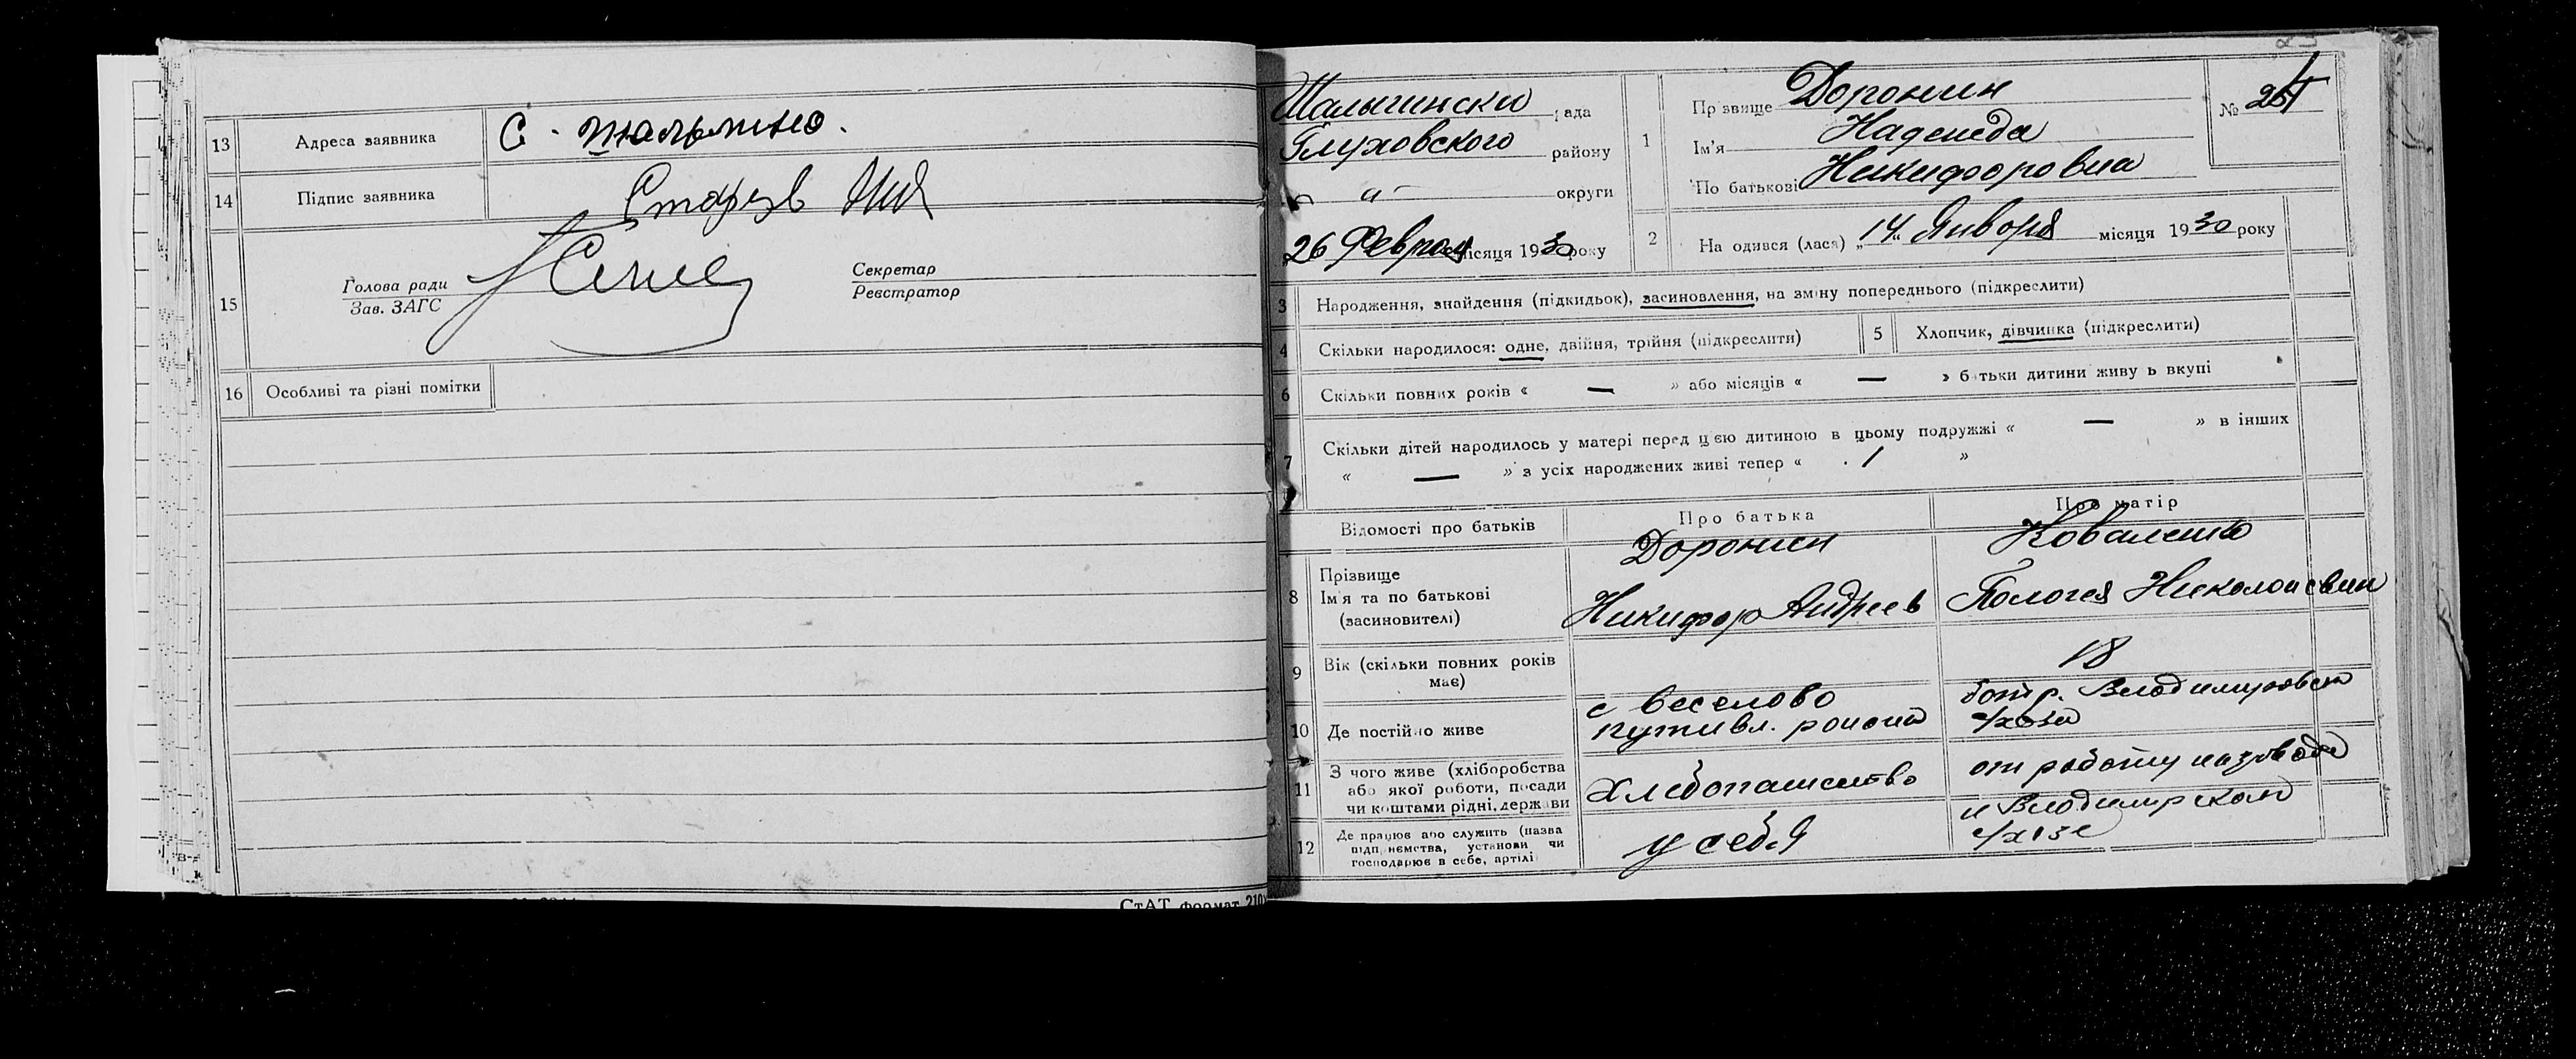 13 Адреса заявника С.
14 Підпис заявника
15 Голова ради
Зав. ЗАГС
Секретар
Реєстратор
16 Особливі та різні помітки
СтАТ формат 210
Шалыгински рада
Глуховского району
" округи
26 Феврал місяця 1930 року
1 Прізвище Доронин
Ім'я Надежда
По батькові Никифоровна
№
2 На одився (лася) „14“ Января місяця 1930 року
3 Народження, знайдення (підкидьок), засиновлення, на зміну попереднього (підкреслити)
4 Скільки народилося: одне, двійня, трійня (підкреслити)
5 Хлопчик, дівчинка (підкреслити)
6 Скільки повних років « — » або місяців « — » батьки дитини живуть вкупі
7 Скільки дітей народилось у матері перед цією дитиною в цьому подружжі « — » в інших
« — » з усіх народжених живі тепер « 1 »
Відомості про батьків Про батька Про матір
8 Прізвище
Ім'я та по батькові
(засиновителі)
Доронин
Никифор Андреев
Коваленко
Пологея Николаевна
9 Вік (скільки повних років
має)
18
10 Де постійно живе
с Веселово
путивл. района
батр. Владимировск
с/хоза
11 З чого живе (хліборобства
або якої роботи, посади
чи коштами рідні, держави
Хлебопашество
от работы
12 Де працює або служить (назва
підприємства, установи чи
господарює в себе, артілі
у себя
с/хозе